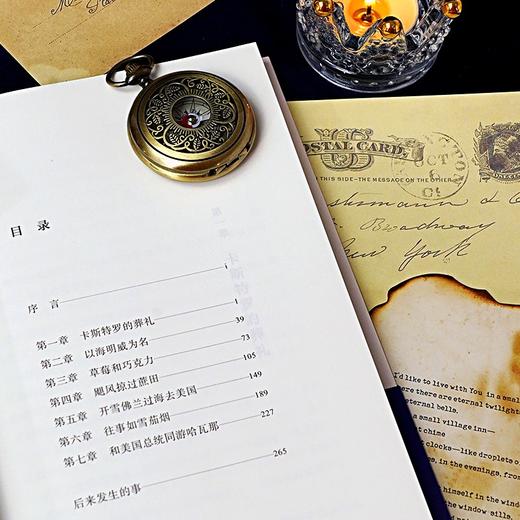 目录
序言 i
第一章 卡斯特罗的葬礼 1
第二章 以海明威为名 39
第三章 草莓和巧克力 73
第四章 飓风掠过蔗田 105
第五章 开雪佛兰过海去美国 149
第六章 往事如雪茄烟 189
第七章 和美国总统同游哈瓦那 227
后来发生的事 265
POSTAL CARD.
THIS SIDE-THE MESSAGE ON THE OTHER
OCT
6
Broadway
New York
I'd like to live with You in a small
there are eternal twilight
eternal bells.
a small village inn—
chime
clocks—like droplets o
in the evenings, from
himself in the window
the window sills.